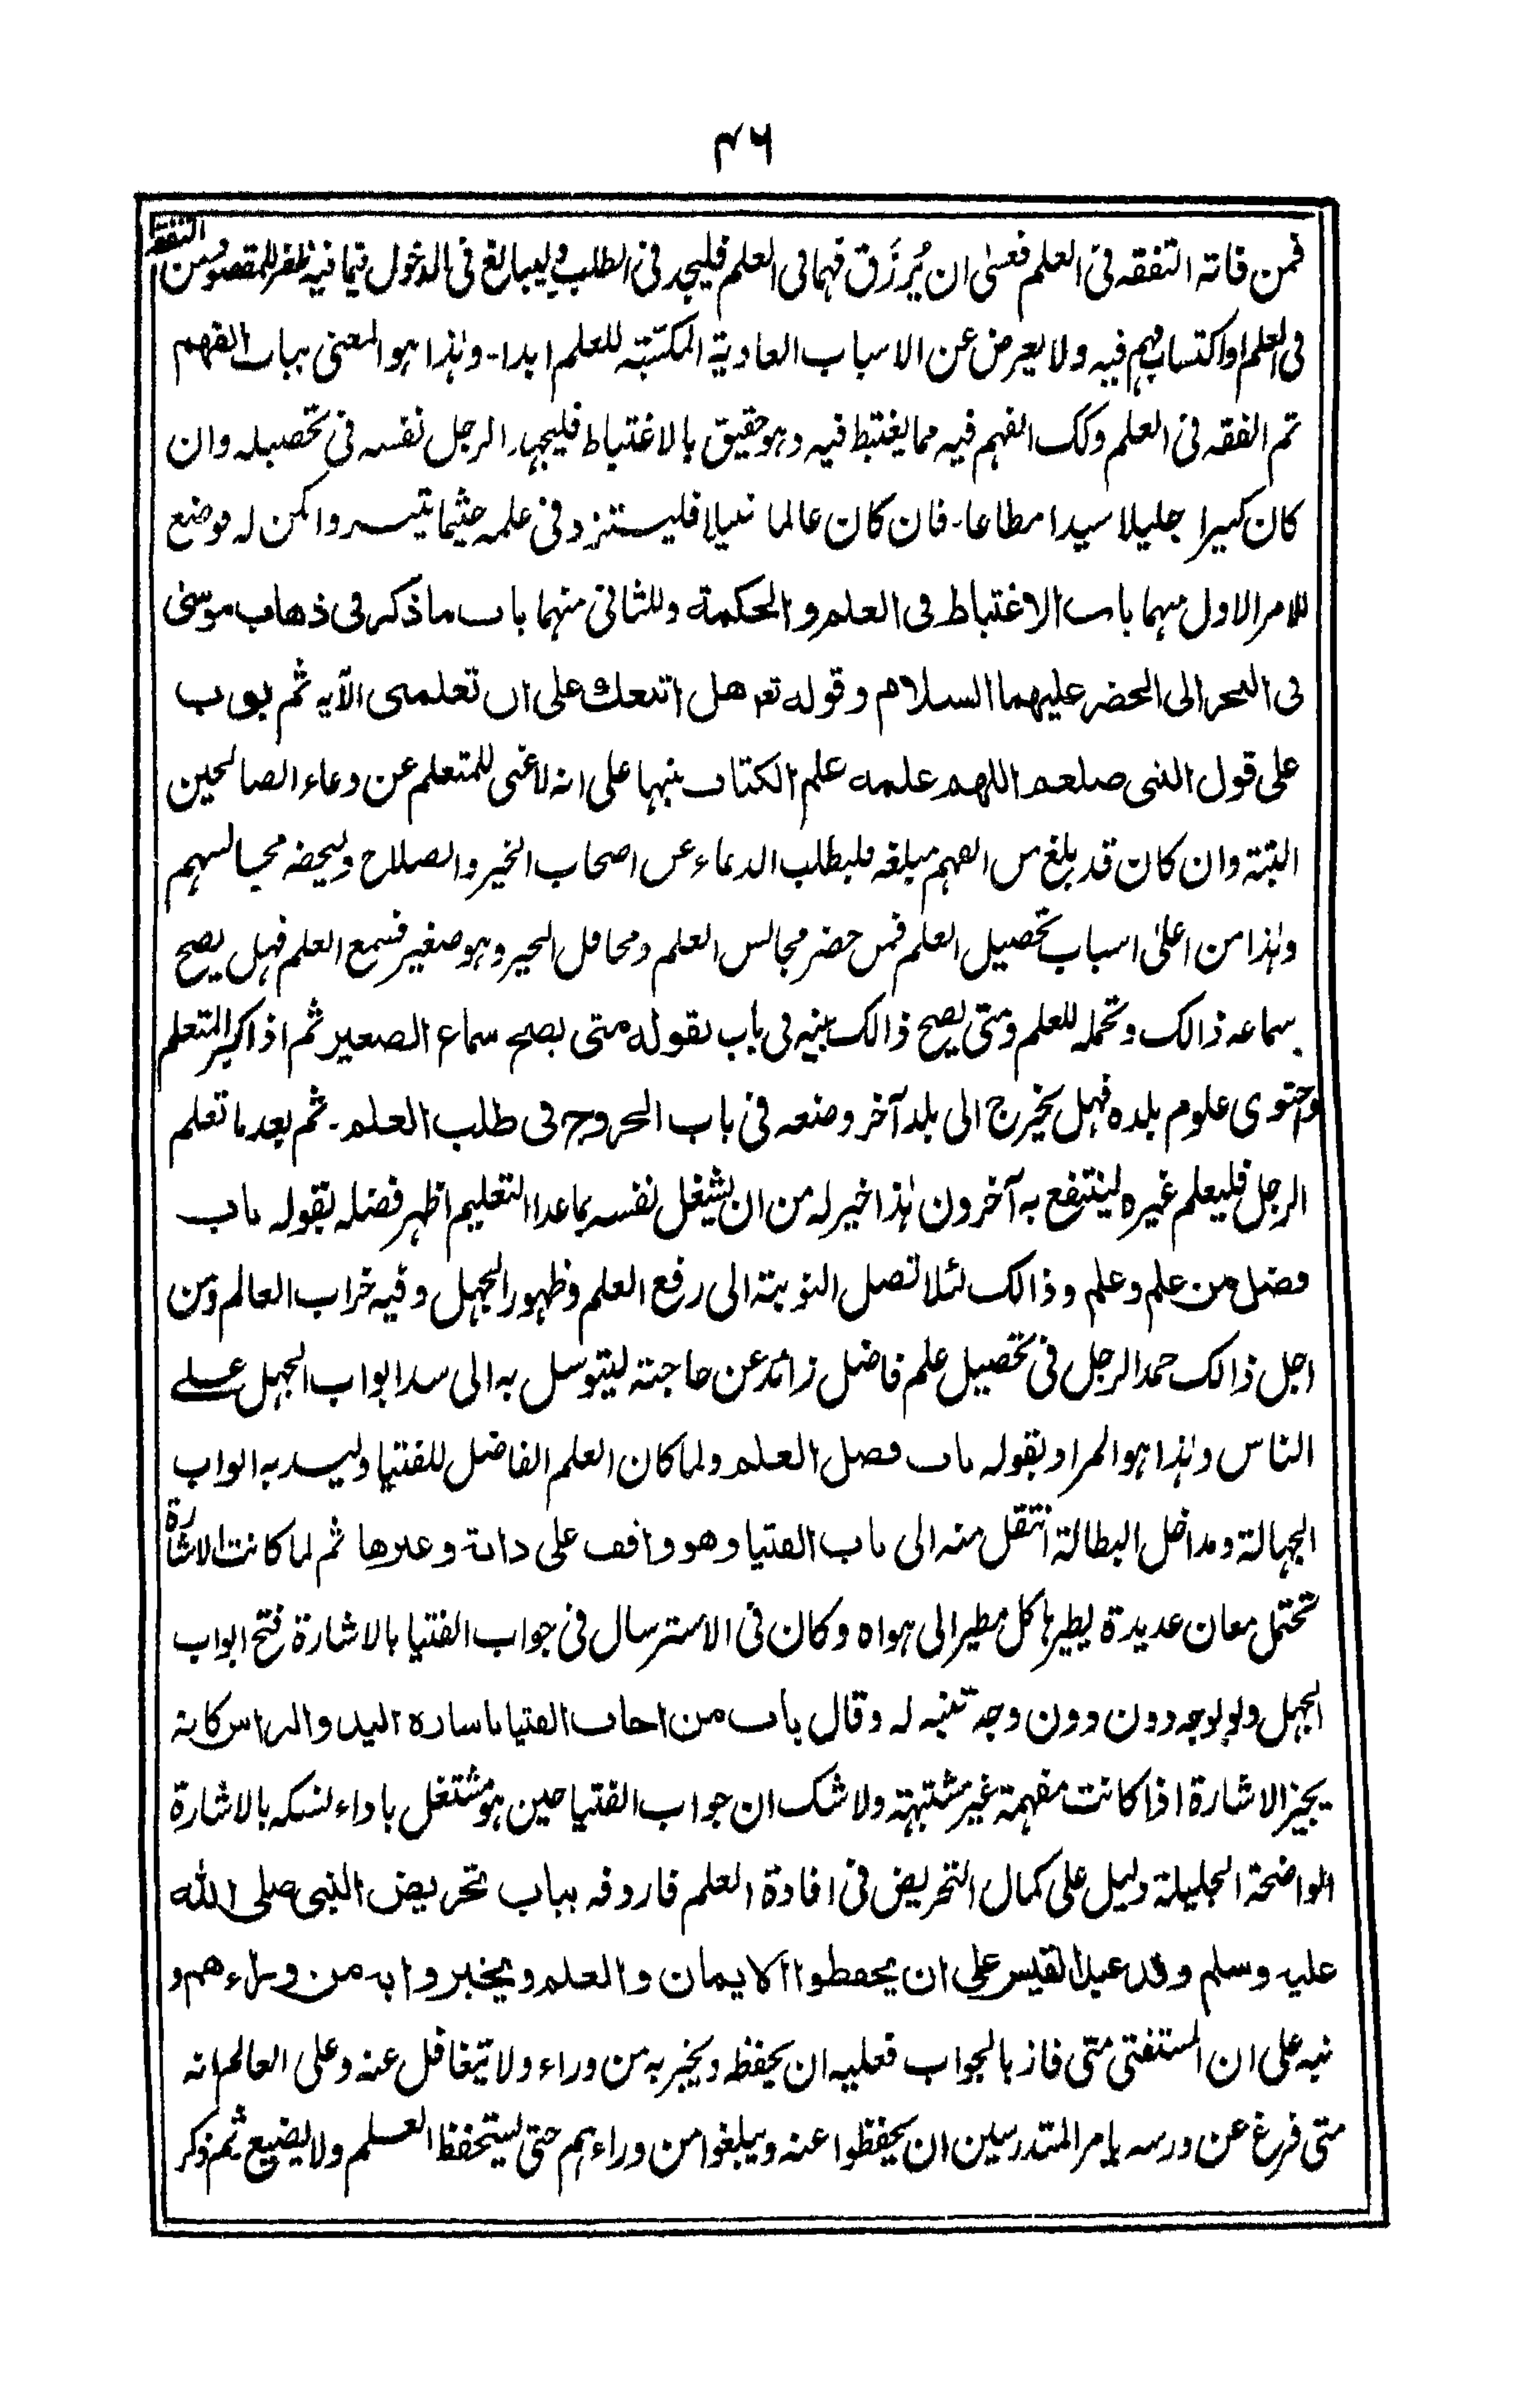 ۴۶
فمن فاته التفقه فی العلم فعسٰی ان یُرزَق فهما فی العلم فلیجد فی الطلب ولیبالغ فی الدخول فیما فیه ظفر للمقصود من التفقہ
فی العلم او اکتساب فہم فیه ولا یعرض عن الاسباب العادیة المکتسبۃ للعلم ابدا۔ وہٰذا ہو المعنی بباب الفهم
ثم الفقه فی العلم وکک الفہم فیه مما یغتبط فیه وہو حقیق بالاغتباط فلیجہد الرجل نفسه فی تحصیله وان
کان کبیرا جلیلا سیدا مطاعا۔ فان کان عالما نبیلا فلیستزد فی علمه حیثما تیسر وامکن له فوضع
للامر الاول منہما باب الاغتباط فی العلم والحکمة وللثانی منہما باب ما ذکر فی ذهاب موسیٰ
فی البحر الی الخضر علیهما السلام وقوله تعہ هل اتبعك علی ان تعلمنی الآیہ ثم بوب
علی قول النبی صلعم اللهم علمه علم الکتاب منبہا علی انه لا غنی للمتعلم عن دعاء الصالحین
البتة وان کان قد بلغ من الفہم مبلغه فلیطلب الدعاء عن اصحاب الخیر والصلاح ولیحضر مجالسہم
وہٰذا من اعلیٰ اسباب تحصیل العلم فمن حضر مجالس العلم ومحافل الخیر وہو صغیر فسمع العلم فہل یصح
سماعه ذالک وتحمله للعلم ومتی یصح ذالک بینه فی باب بقوله متی یصح سماع الصغیر ثم اذا کبر المتعلم
واحتوی علوم بلدہ فہل یخرج الی بلد آخر وضعه فی باب الخروج فی طلب العلم۔ ثم بعد ما تعلم
الرجل فلیعلم غیرہ لینتفع به آخرون ہٰذا خیر له من ان یشغل نفسه بما عدا التعلیم اظہر فضله بقوله باب
فضل من علم وعلم وذالک لئلا تصل النوبة الی رفع العلم وظہور الجہل وفیه خراب العالم ومن
اجل ذالک حمد الرجل فی تحصیل علم فاضل زائد عن حاجتہ لیتوسل به الی سد ابواب الجہل علے
الناس وہٰذا ہو المراد بقوله باب فضل العلم ولما کان العلم الفاضل للفتیا ولیسد به ابواب
الجہالة ومداخل البطالة انتقل منه الی باب الفتیا وهو واقف علی دابة وغیرها ثم لما کانت الاشارة
تحتمل معان عدیدة یطیرہا کل مطیر الی ہواہ وکان فی الاسترسال فی جواب الفتیا بالاشارة فتح ابواب
الجہل ولو بوجه دون وجه تنبه له وقال باب من اجاب الفتیا باشارة الید والراس کانه
یجیز الاشارة اذا کانت مفہمة غیر مشتبہة ولا شک ان جواب الفتیا حین ہو مشتغل باداء نسکه بالاشارة
الواضحة الجلیلة دلیل علی کمال التحریض فی افادة العلم فاردفه بباب تحریض النبی صلی الله
علیه وسلم وفد عبد القیس علی ان یحفظوا الایمان والعلم ویخبروا به من وراءهم و
نبه علی ان المستفتی متی فاز بالجواب فعلیه ان یحفظه ویخبر به من وراء ولا یتغافل عنه وعلی العالم انه
متی فرغ عن درسه یامر المتدرسین ان یحفظوا عنه ویبلغوا من وراءہم حتی یستحفظ العلم ولا یضیع ثم ذکر